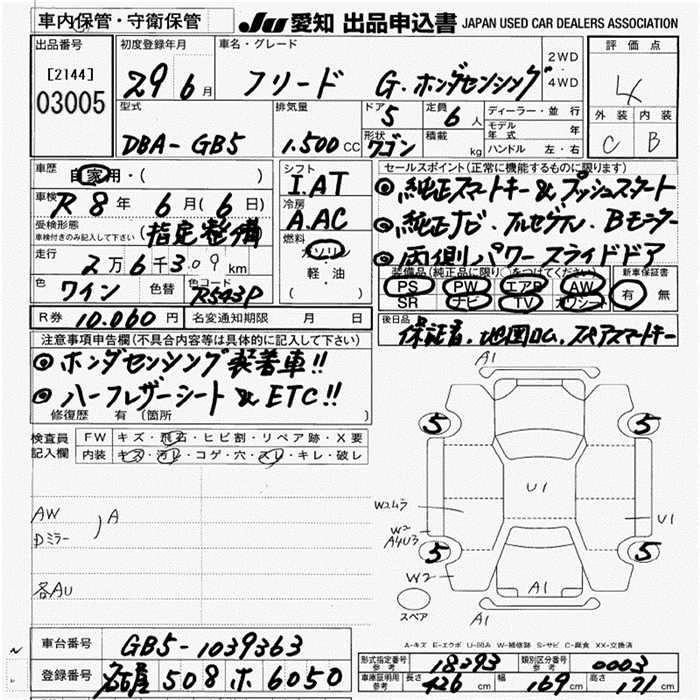 車内保管・守衛保管
JU 愛知 出品申込書 JAPAN USED CAR DEALERS ASSOCIATION
出品番号
[2144]
03005
初度登録年月
29 6月
車名・グレード
フリード G.ホンダセンシング
2WD
・
4WD
評価点
4
外装 内装
C B
型式
DBA-GB5
排気量
1.500 CC
ドア
5
定員
6人
形状
ワゴン
積載
kg
ディーラー・並行
モデル年式 年
ハンドル 左・右
車歴
自家用・( )
車検
R8年 6月(6日)
受検形態
車検付きのみ記入して下さい
(指定整備)
走行
2万6千309km
色
ワイン
色替
色コード
R543P
シフト
I.AT
冷房
A.AC
燃料
ガソリン
軽・油
( )
セールスポイント(正常に機能するものに限ります)
◎純正スマートキー&プッシュスタート
◎純正ナビ.フルセグTV.Bモニター
◎両側パワースライドドア
装備品(純正品に限り○をつけてください)
PS PW エアB AW
SR ナビ TV カワシート
新車保証書
有 無
R券 10.060円
名変通知期限 月 日
後日品
保証書.地図ROM.スペアスマートキー
注意事項申告欄(不具合内容等は具体的に記入して下さい)
◎ホンダセンシング装着車!!
◎ハーフレザーシート&ETC!!
修復歴 有 (箇所
検査員
記入欄
FW キズ・飛石・ヒビ割・リペア跡・X要
内装 キズ・汚レ・コゲ・穴・スレ・キレ・破レ
AW
Dミラー
A
各AU
A1
5 5
U1
W2ムラ
W2
A4U3
U1
5 5
W2
A1
スペア
A1
A-キズ E-エクボ U-凹み W-補修跡 S-サビ C-腐食 XX-交換済
車台番号 GB5-1039363
登録番号 名古屋 508 ホ 6050
形式指定番号
参考
18293
類別区分番号
参考
0003
車庫証明用
参考
長さ 426cm 幅 169cm 高さ 171cm